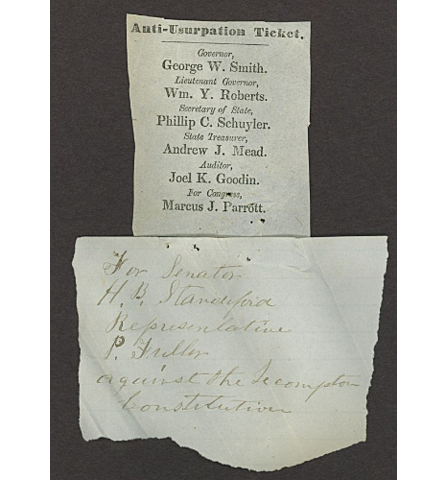 Anti-Usurpation Ticket.
Governor,
George W. Smith.
Lieutenant Governor,
Wm. Y. Roberts.
Secretary of State,
Phillip C. Schuyler.
State Treasurer,
Andrew J. Mead.
Auditor,
Joel K. Goodin.
For Congress,
Marcus J. Parrott.
For Senator
H. B. Standiford
Representative
P. Fuller
against the Lecompton
Constitution